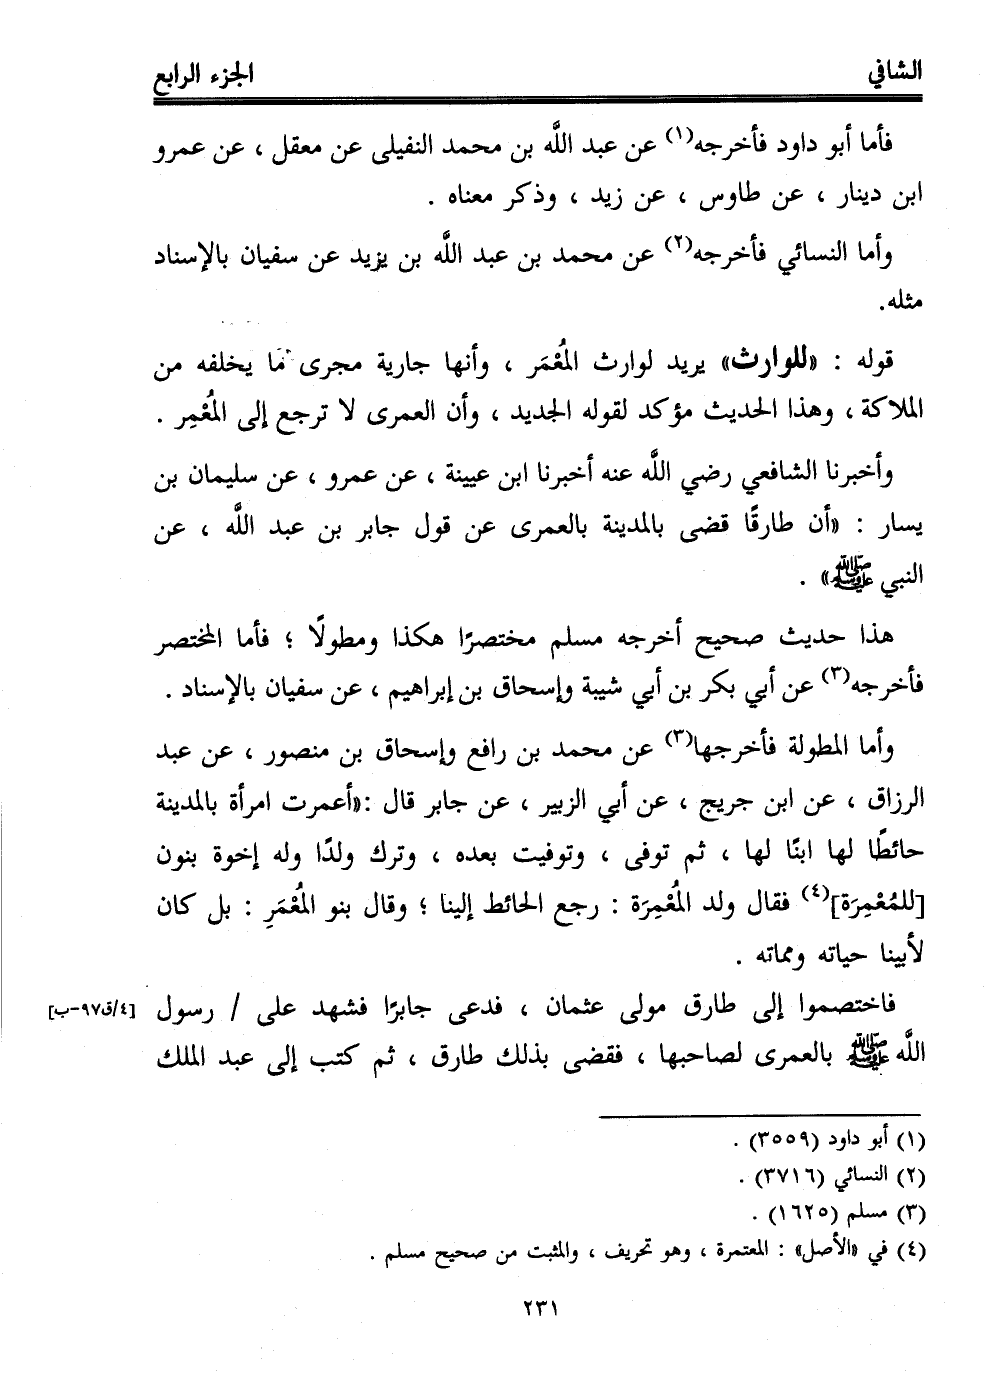 الشافي
الجزء الرابع
فأما أبو داود فأخرجه(١) عن عبد اللَّه بن محمد النفيلى عن معقل ، عن عمرو
ابن دينار ، عن طاوس ، عن زيد ، وذكر معناه .
وأما النسائي فأخرجه(٢) عن محمد بن عبد اللَّه بن يزيد عن سفيان بالإسناد
مثله.
قوله : «للوارث» يريد لوارث المُعْمَر ، وأنها جارية مجرى ما يخلفه من
الملاكة ، وهذا الحديث مؤكد لقوله الجديد ، وأن العمرى لا ترجع إلى المُعْمِر .
وأخبرنا الشافعي رضي اللَّه عنه أخبرنا ابن عيينة ، عن عمرو ، عن سليمان بن
يسار : «أن طارقًا قضى بالمدينة بالعمرى عن قول جابر بن عبد اللَّه ، عن
النبي ﷺ» .
هذا حديث صحيح أخرجه مسلم مختصرًا هكذا ومطولًا ؛ فأما المختصر
فأخرجه(٣) عن أبي بكر بن أبي شيبة وإسحاق بن إبراهيم ، عن سفيان بالإسناد .
وأما المطولة فأخرجها(٣) عن محمد بن رافع وإسحاق بن منصور ، عن عبد
الرزاق ، عن ابن جريج ، عن أبي الزبير ، عن جابر قال :«أعمرت امرأة بالمدينة
حائطًا لها ابنًا لها ، ثم توفى ، وتوفيت بعده ، وترك ولدًا وله إخوة بنون
[للمُعْمِرَة](٤) فقال ولد المُعْمِرَة : رجع الحائط إلينا ؛ وقال بنو المُعْمَرِ : بل كان
لأبينا حياته ومماته .
فاختصموا إلى طارق مولى عثمان ، فدعى جابرًا فشهد على / رسول [٤/ق٩٧-ب]
اللَّه ﷺ بالعمرى لصاحبها ، فقضى بذلك طارق ، ثم كتب إلى عبد الملك
(١) أبو داود (٣٥٥٩) .
(٢) النسائي (٣٧١٦) .
(٣) مسلم (١٦٢٥) .
(٤) في «الأصل» : المعتمرة ، وهو تحريف ، والمثبت من صحيح مسلم .
٢٣١